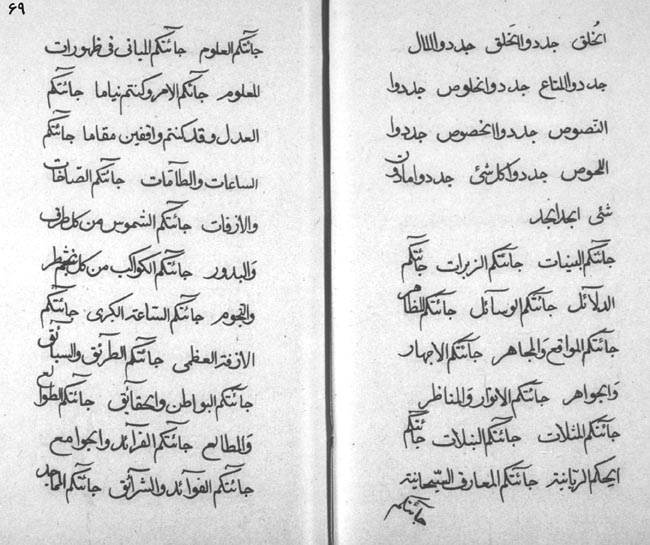 اتخلق جددوا اتخلق جددوا المثال
جددوا المتاع جددوا الخلوص جددوا
النصوص جددوا الخصوص جددوا
اللصوص جددوا كل شئ جددوا مادون
شئ ابجد ابجد
جائتكم البينات جائتكم الزبرات جائتكم
الدلائل جائتكم الوسائل جائتكم المظاهر
جائتكم المواقع والمجاهر جائتكم الاجهار
والجواهر جائتكم الانوار والمناظر
جائتكم المثلات جائتكم جائتكم
الحكم الربانية جائتكم المعارف السبحانية
جائتكم
۶۹
جائتكم العلوم جائتكم المبانی فی ظهورات
للعلوم جائكم الامر وكنتم نياما جائتكم
العدل وقد كنتم واقفين مقاما جائتكم
الساعات والطآمات جائتكم الصآفات
والازفات جائتكم الشموس من كل طرف
والبدور جائتكم الكواكب من كل
والنجوم جائتكم الساعة الكبری جائتكم
الازفة العظمی جائتكم الطرآئق والسبآئق
جائتكم البواطن والحقآئق جائتكم الطوالع
والمطالع جائتكم الفرآئد والجوامع
جائتكم الفوآئد والشرآئق جائتكم الماجد